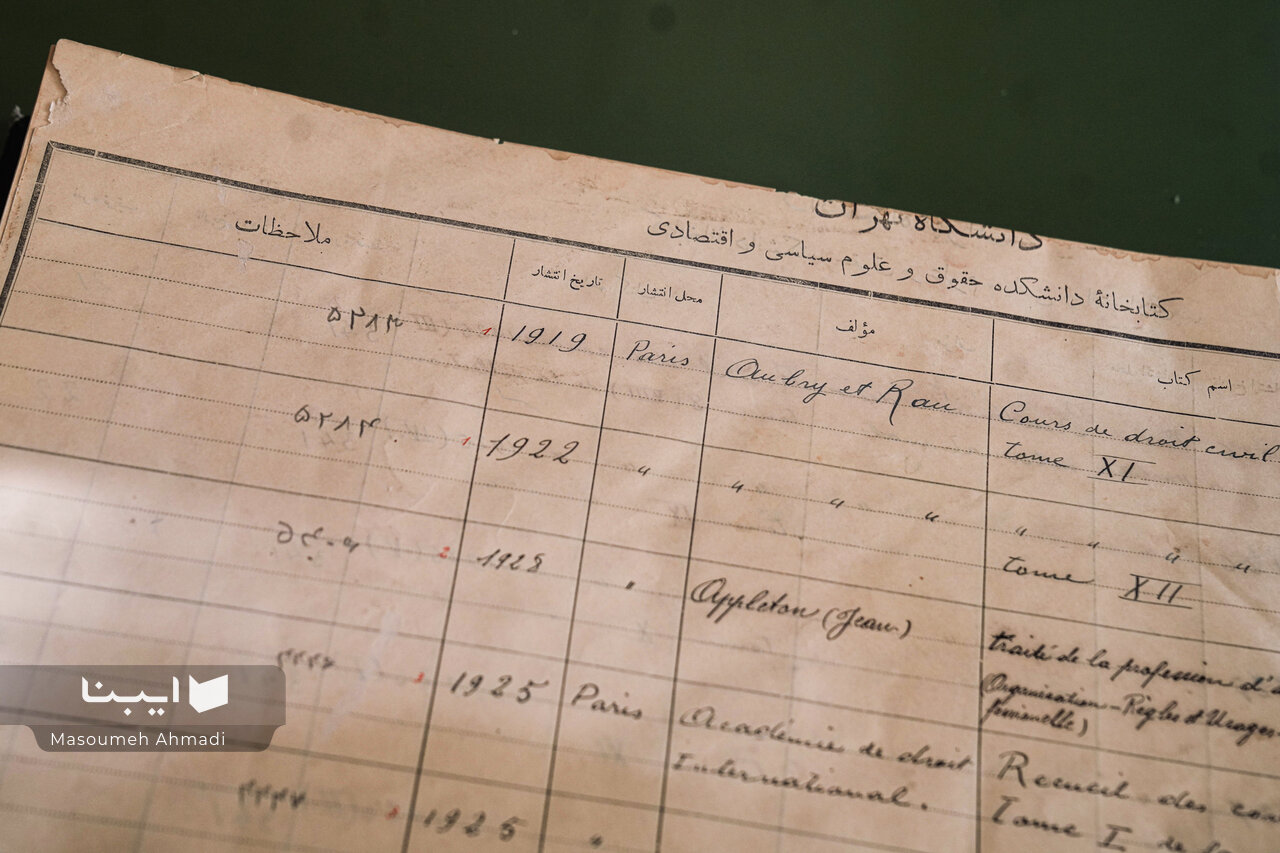 دانشگاه تهران
کتابخانهٔ دانشکده حقوق و علوم سیاسی و اقتصادی
ملاحظات تاریخ انتشار محل انتشار مؤلف اسم کتاب
۵۲۸۳ 1 1919 Paris Aubry et Rau Cours de droit civil
tome XI
۵۲۸۴ 1 1922 " " " " " " " "
tome XII
2 1928 " Appleton (Jean) traité de la profession
Organisation - Règles et Usages
3 1925 Paris Académie de droit Recueil des
International. Tome I de
3 1925 "
ایبنا
Masoumeh Ahmadi